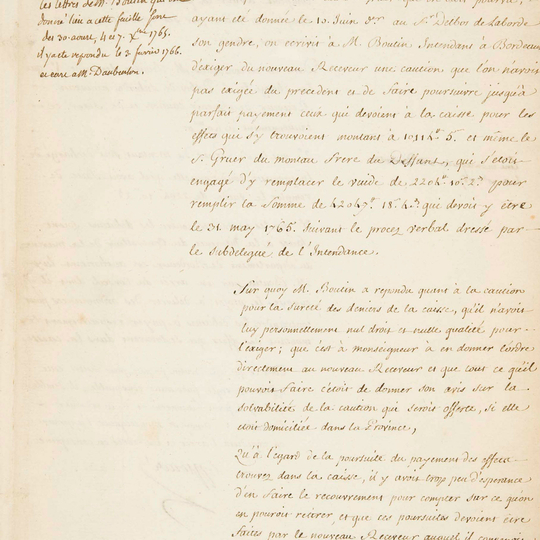 les lettres de M. Boutin qui ont
donné lieu a cette feuille sont
des 30. aoust, 4 et 7. Xbre 1765.
il y a eté repondu le 3 fevrier 1766.
et ecrit a M. Daubenton.
ayant eté donnée le 10. Juin dr. au Sr. Delbos de Laborde
son gendre, on ecrivit à M. Boutin Intendant à Bordeaux
d'exiger du nouveau Receveur une caution que l'on n'avoit
pas exigée du precedent et de faire poursuivre jusqu'à
parfait payement ceux qui devoient à la caisse pour les
effets qui s'y trouvoient montant à 1011lt. 5. et même le
S. Gruer du monteau frere du deffunt, qui s'etoit
engagé d'y remplacer le vuide de 2204lt. 10s. 2d. pour
remplir la Somme de 42047lt. 18s. 4d. qui devoit y être
le 31. may 1765. Suivant le procez verbal dressé par
le subdelegué de l'Intendance.
Sur quoy M. Boutin a repondu quant à la caution
pour la sureté des deniers de la caisse, qu'il n'avoit
luy personnellement nul droit et nulle qualité pour
l'exiger; que c'est à monseigneur à en donner l'ordre
directement au nouveau Receveur et que tout ce qu'il
pouvoit faire c'étoit de donner son avis sur la
solvabilité de la caution qui seroit offerte, si elle
etoit domiciliée dans la Province,
Qu'à l'egard de la poursuite du payement des effets
trouvez dans la caisse, il y avoit trop peu d'esperance
d'en faire le recouvrement pour compter sur ce qu'on
en pouroit retirer, et que ces poursuites devoient être
faites par le nouveau Receveur auquel il convenoit